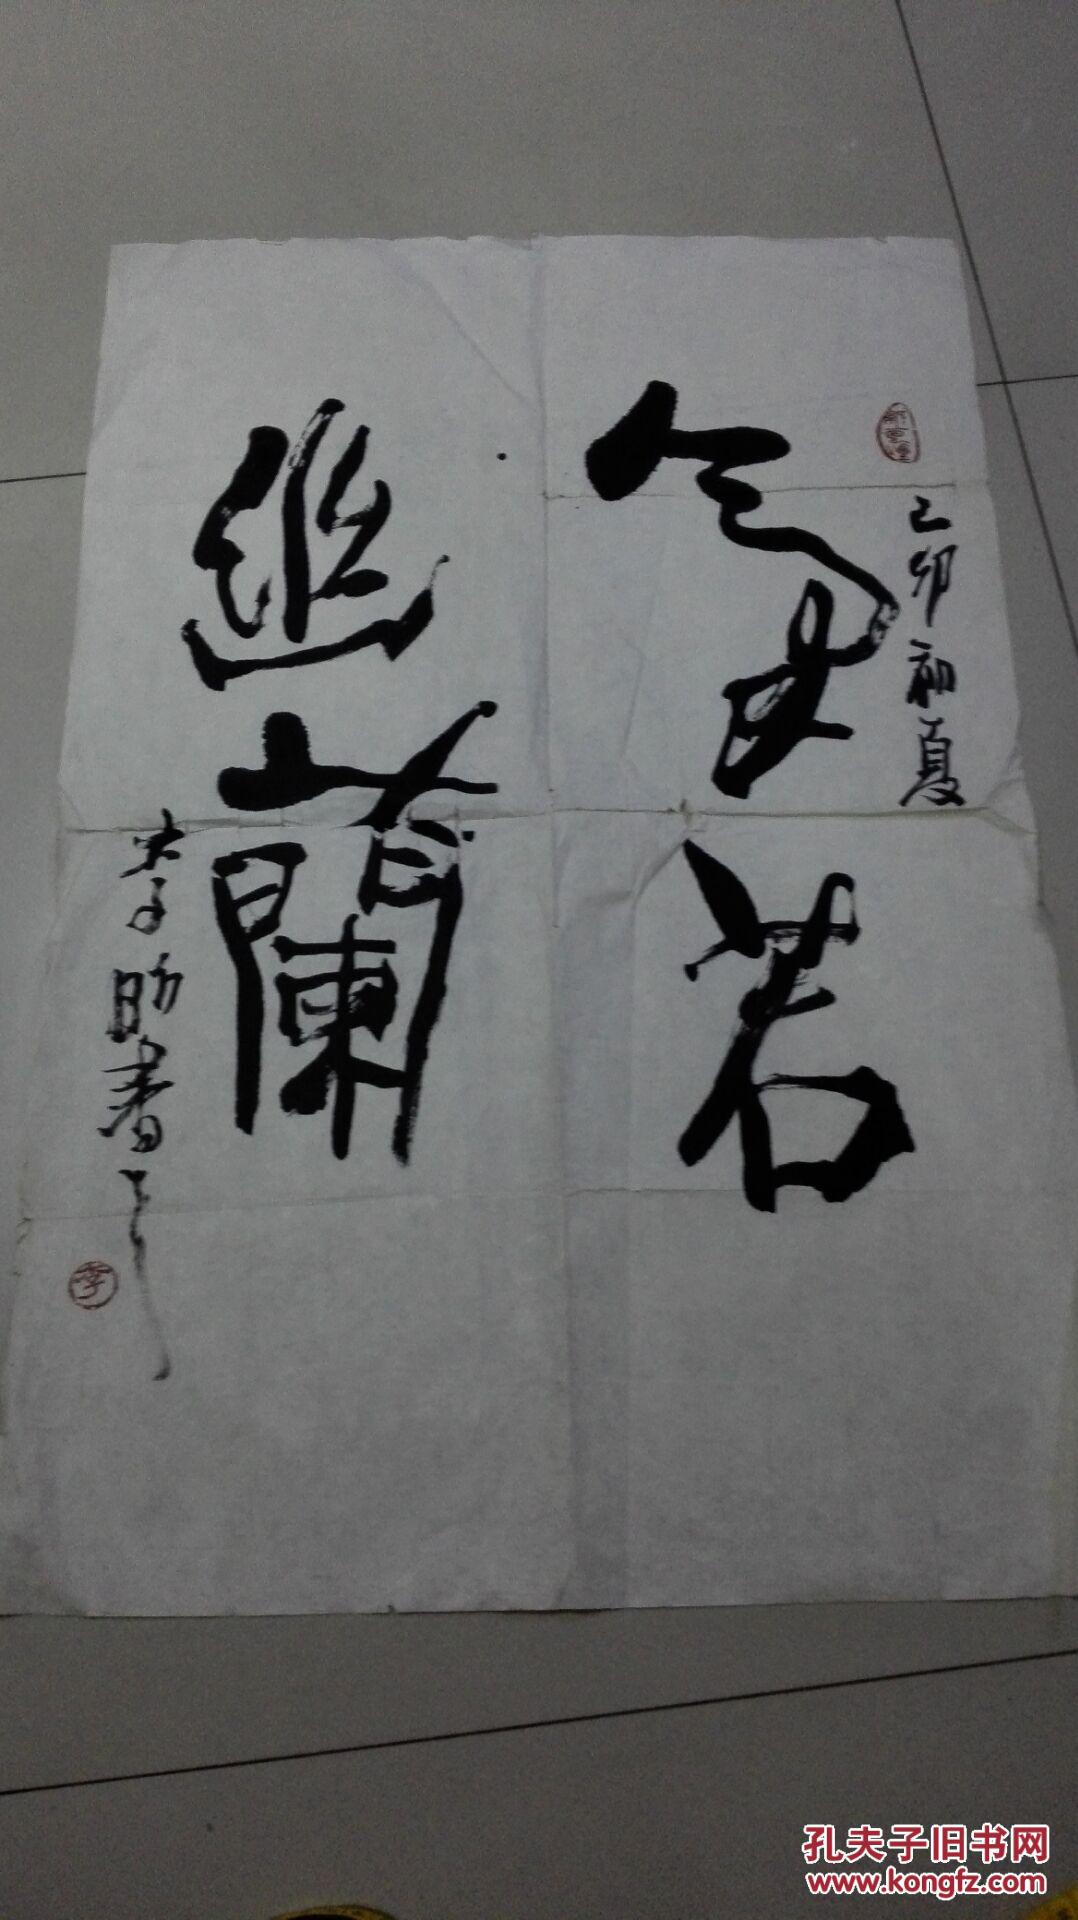 己卯初夏
氣若
幽蘭
李子昉書
李
孔夫子旧书网
www.kongfz.com